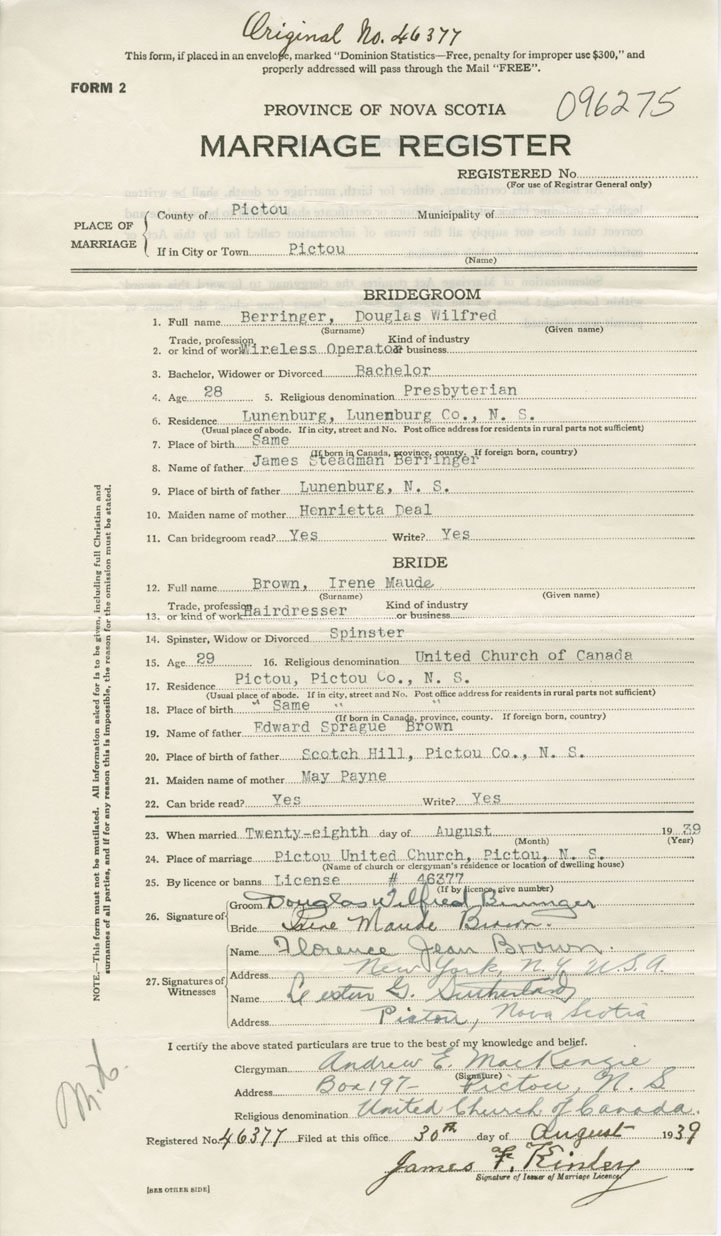 Original No. 46377
This form, if placed in an envelope, marked "Dominion Statistics—Free, penalty for improper use $300," and
properly addressed will pass through the Mail "FREE".
FORM 2
096275
PROVINCE OF NOVA SCOTIA
MARRIAGE REGISTER
REGISTERED No.
(For use of Registrar General only)
PLACE OF MARRIAGE
County of Pictou Municipality of
If in City or Town Pictou
(Name)
BRIDEGROOM
1. Full name Berringer, Douglas Wilfred
(Surname) (Given name)
Trade, profession Kind of industry
2. or kind of work Wireless Operator or business
3. Bachelor, Widower or Divorced Bachelor
4. Age 28 5. Religious denomination Presbyterian
6. Residence Lunenburg, Lunenburg Co., N. S.
(Usual place of abode. If in city, street and No. Post office address for residents in rural parts not sufficient)
7. Place of birth Same
(If born in Canada, province, county. If foreign born, country)
8. Name of father James Steadman Berringer
9. Place of birth of father Lunenburg, N. S.
10. Maiden name of mother Henrietta Deal
11. Can bridegroom read? Yes Write? Yes
BRIDE
12. Full name Brown, Irene Maude
(Surname) (Given name)
Trade, profession Kind of industry
13. or kind of work Hairdresser or business
14. Spinster, Widow or Divorced Spinster
15. Age 29 16. Religious denomination United Church of Canada
17. Residence Pictou, Pictou Co., N. S.
(Usual place of abode. If in city, street and No. Post office address for residents in rural parts not sufficient)
18. Place of birth " Same " "
(If born in Canada, province, county. If foreign born, country)
19. Name of father Edward Sprague Brown
20. Place of birth of father Scotch Hill, Pictou Co., N. S.
21. Maiden name of mother May Payne
22. Can bride read? Yes Write? Yes
23. When married Twenty-eighth day of August 19 39
(Month) (Year)
24. Place of marriage Pictou United Church, Pictou, N. S.
(Name of church or clergyman's residence or location of dwelling house)
25. By licence or banns License # 46377
(If by licence, give number)
26. Signature of
Groom Douglas Wilfred Berringer
Bride Irene Maude Brown.
27. Signatures of Witnesses
Name Florence Jean Brown.
Address New York, N.Y. U.S.A.
Name Lester G. Sutherland
Address Pictou, Nova Scotia
I certify the above stated particulars are true to the best of my knowledge and belief.
Clergyman Andrew E. MacKenzie
(Signature)
Address Box 197- Pictou, N. S
Religious denomination United Church of Canada.
Registered No. 46377 Filed at this office 30th day of August 1939
James F. Kinley
Signature of Issuer of Marriage Licence
[SEE OTHER SIDE]
NOTE.—This form must not be mutilated. All information asked for is to be given, including full Christian and
surnames of all parties, and if for any reason this is impossible, the reason for the omission must be stated.